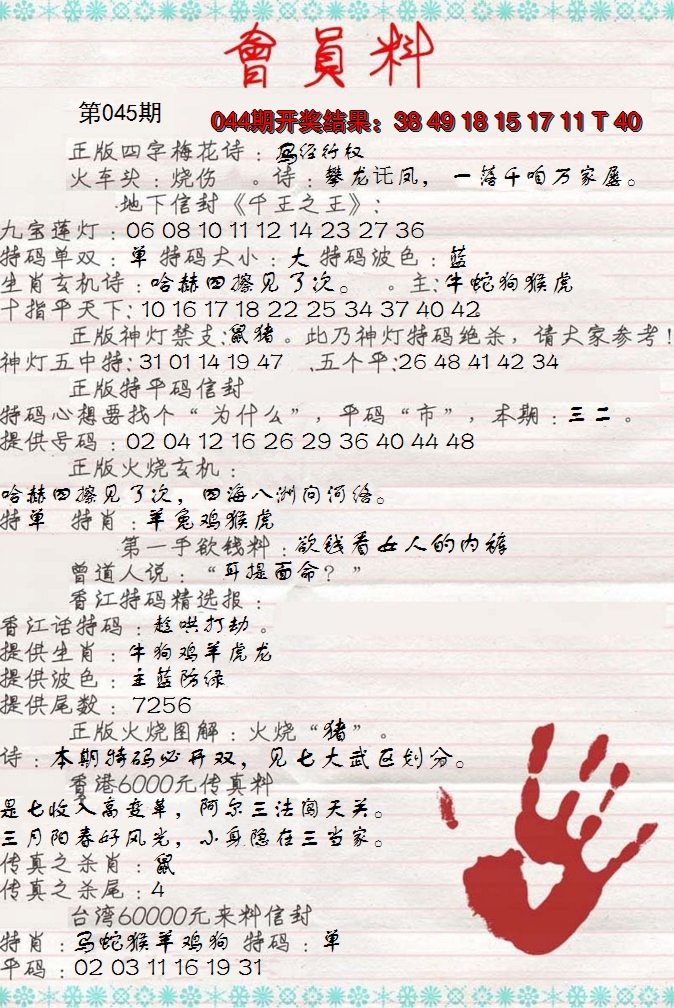 會員料
第045期
044期开奖结果：38 49 18 15 17 11 T 40
正版四字梅花诗：马经行权
火车头：烧伤 。诗：攀龙讬凤，一落千咱万家愿。
地下信封《千王之王》：
九宝莲灯：06 08 10 11 12 14 23 27 36
特码单双：单 特码大小：大 特码波色：蓝
生肖玄机诗：哈赫四擦见了次。 。主：牛蛇狗猴虎
十指平天下：10 16 17 18 22 25 34 37 40 42
正版神灯禁支：鼠猪。此乃神灯特码绝杀，请大家参考！
神灯五中特：31 01 14 19 47 .五个平：26 48 41 42 34
正版特平码信封
特码心想要找个“为什么”，平码“市”，本期：三二。
提供号码：02 04 12 16 26 29 36 40 44 48
正版火烧玄机：
哈赫四擦见了次，四海八洲问河络。
特单 特肖：羊兔鸡猴虎
第一手欲钱料：欲钱看女人的内裤
曾道人说：“耳提面命？”
香江特码精选报：
香江话特码：趁哄打劫。
提供生肖：牛狗鸡羊虎龙
提供波色：主蓝防绿
提供尾数：7256
正版火烧图解：火烧“猪”。
诗：本期特码必开双，见七大武区划分。
香港6000元传真料
是七收入高变革，阿尔三法闯天关。
三月阳春好风光，小身隐在三当家。
传真之杀肖：鼠
传真之杀尾：4
台湾60000元来料信封
特肖：马蛇猴羊鸡狗 特码：单
平码：02 03 11 16 19 31